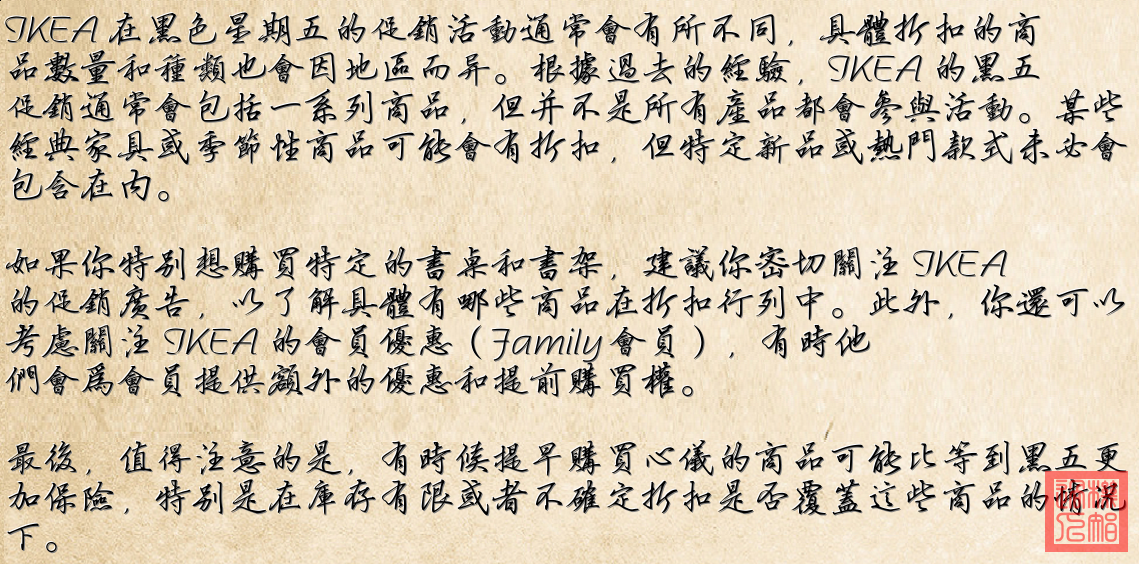 IKEA 在黑色星期五的促銷活動通常會有所不同，具體折扣的商
品數量和種類也會因地區而异。根據過去的經驗，IKEA 的黑五
促銷通常會包括一系列商品，但并不是所有產品都會參與活動。某些
經典家具或季節性商品可能會有折扣，但特定新品或熱門款式未必會
包含在內。
如果你特別想購買特定的書桌和書架，建議你密切關注 IKEA
的促銷廣告，以了解具體有哪些商品在折扣行列中。此外，你還可以
考慮關注 IKEA 的會員優惠（Family 會員），有時他
們會爲會員提供額外的優惠和提前購買權。
最後，值得注意的是，有時候提早購買心儀的商品可能比等到黑五更
加保險，特別是在庫存有限或者不確定折扣是否覆蓋這些商品的情況
下。